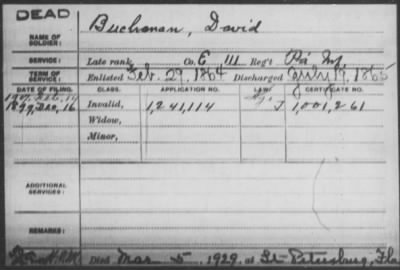 DEAD
NAME OF SOLDIER:
Buchanan, David
SERVICE:
Late rank, Co. E 111 Reg't Pa Inf.
TERM OF SERVICE:
Enlisted Feb. 29, 1864 Discharged July 19, 1865
DATE OF FILING. CLASS. APPLICATION NO. LAW. CERTIFICATE NO.
1899, Dec, 16 Invalid, 1,241,114 1,001,261
Widow,
Minor,
ADDITIONAL SERVICES:
REMARKS:
Died Mar 5, 1929, at St Petersburg, Fla